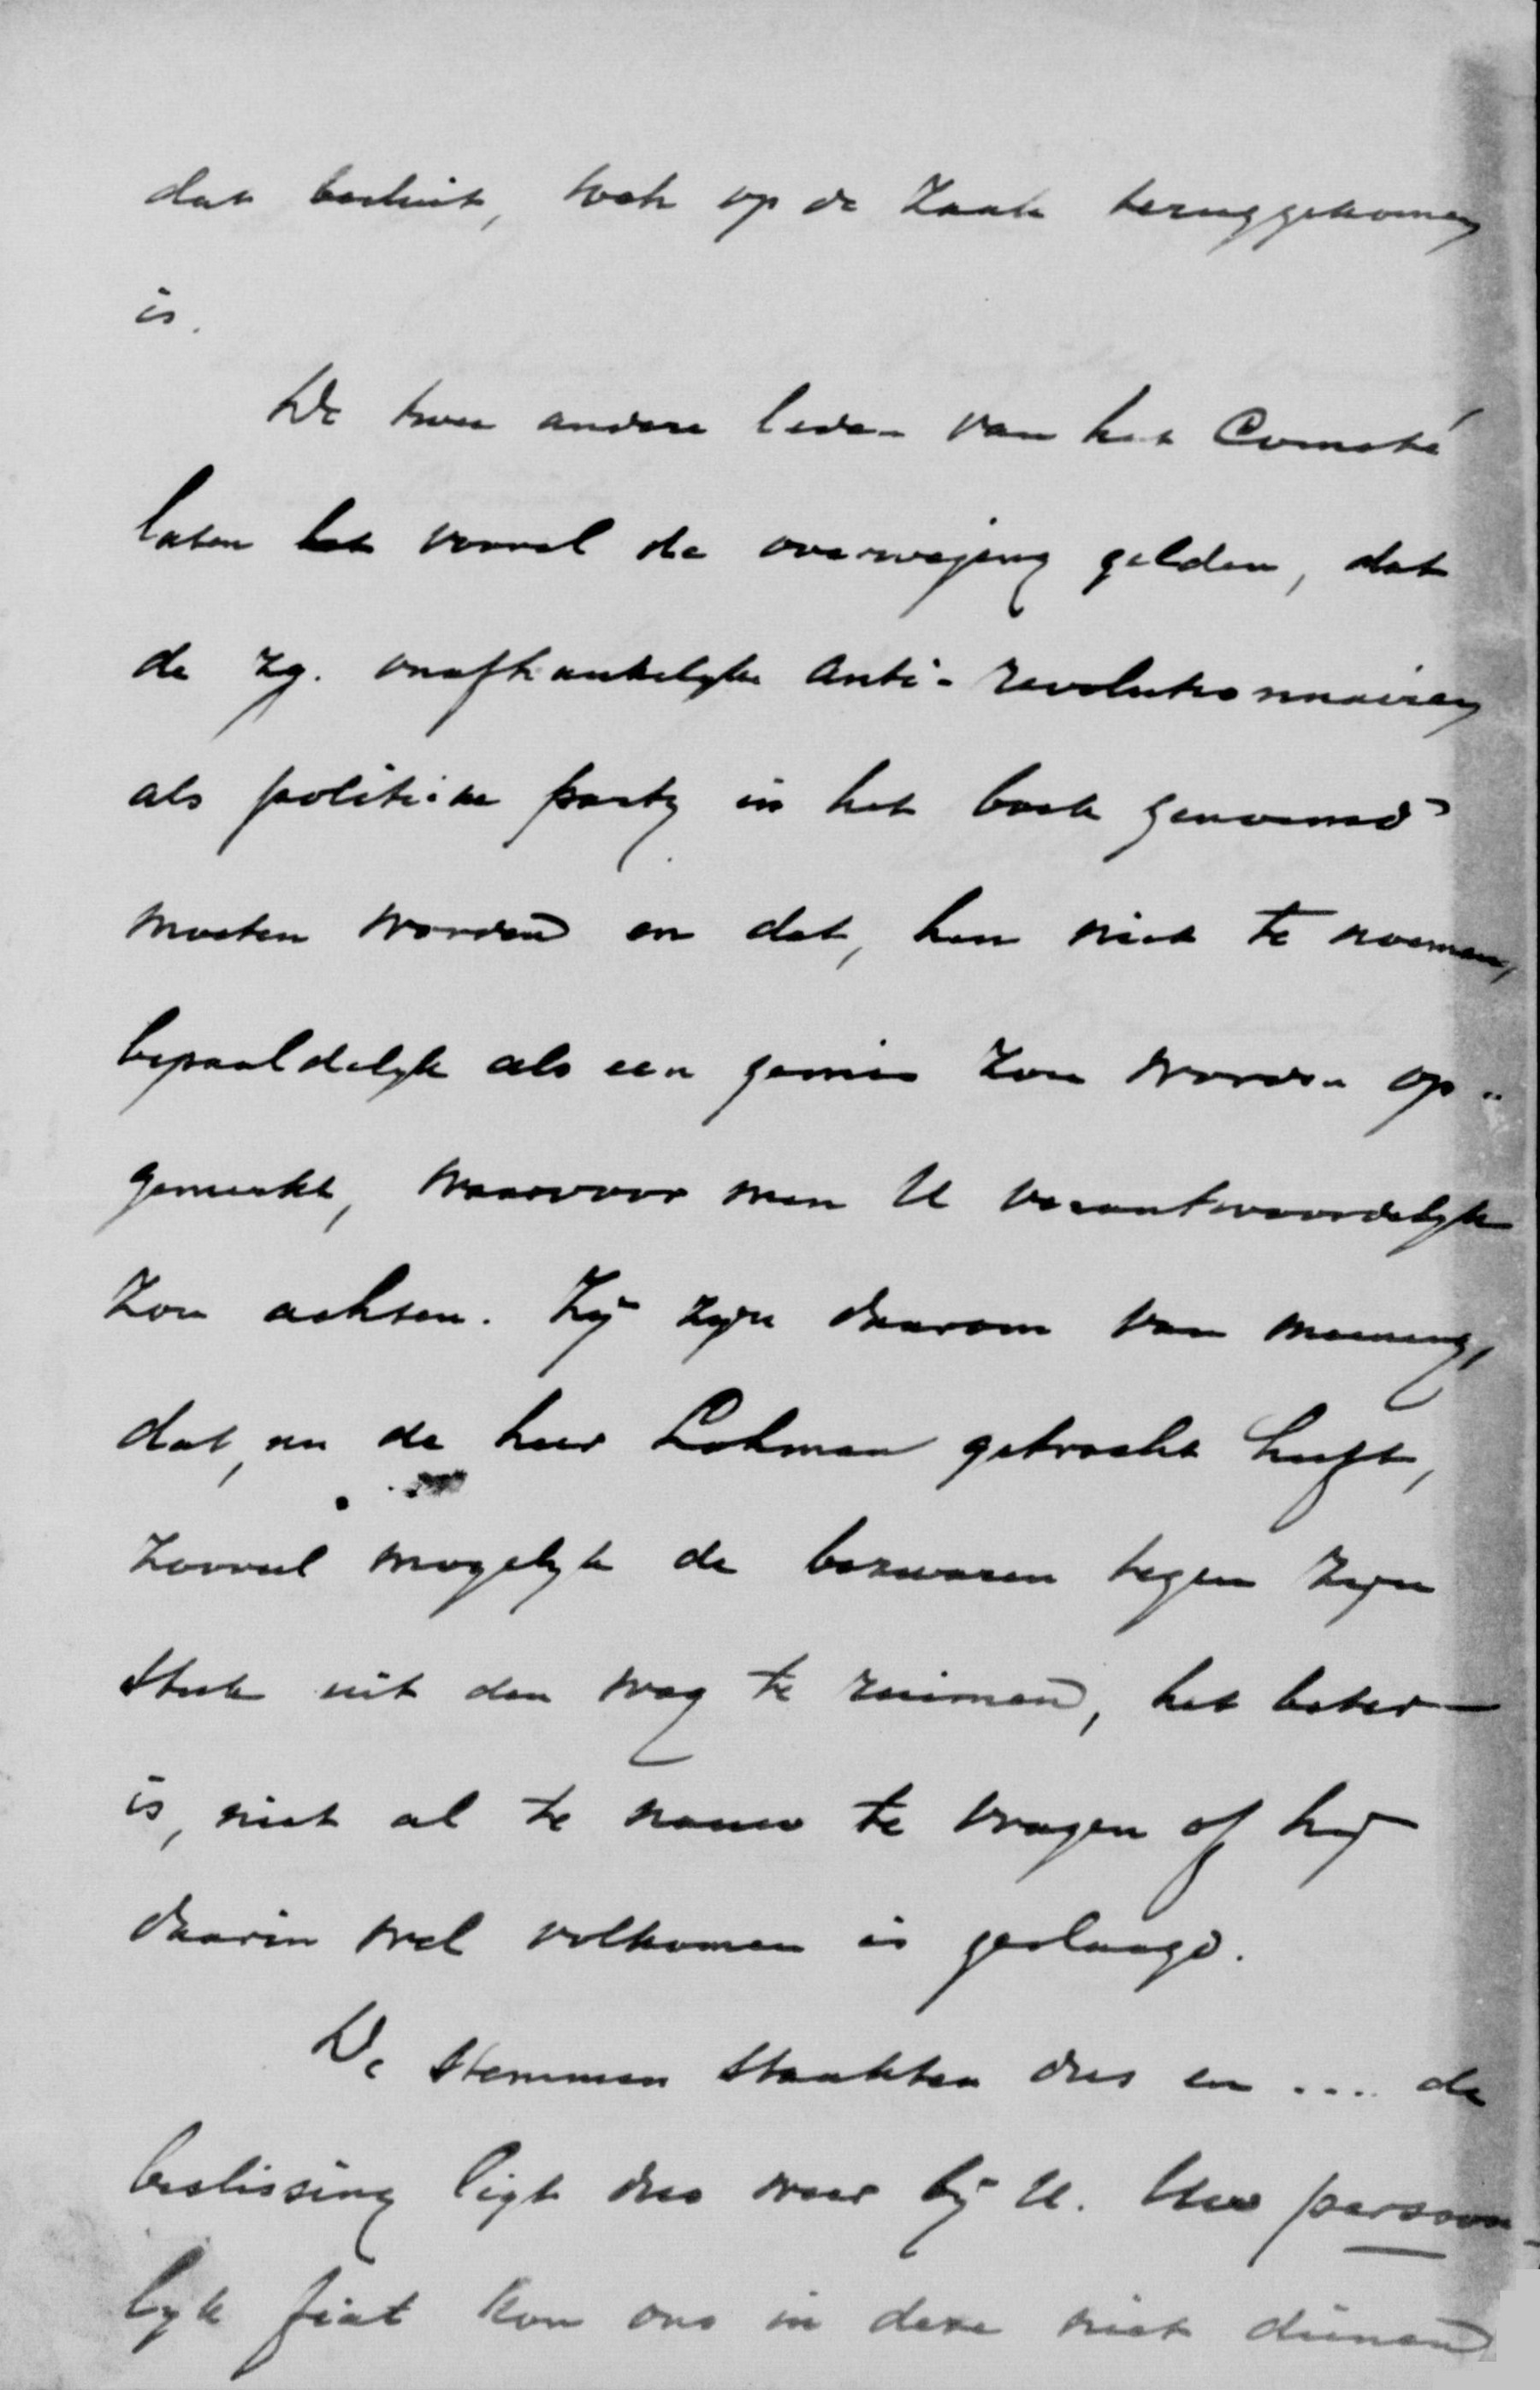 dat besluit, toch op de zaak teruggekomen
is.
De twee andere leden van het Comité
laten het vooral de overweging gelden, dat
de zg. onafhankelyke anti-revolutionnairen
als politieke party in het boek genoemd
moeten worden en dat, hen niet te noemen,
bepaaldelyk als een gemis zou worden op-
gemerkt, waarvoor men U verantwoordelyk
zou achten. Zij zyn daarom van meening,
dat, nu de heer Lohman getracht heeft,
zooveel mogelyk de bezwaren tegen zyn
stuk uit den weg te ruimen, het beter
is, niet al te nauw te vragen of hij
daarin wel volkomen is geslaagd.
De stemmen staakten dus en .... de
beslissing ligt dus weer bij U. Uw persoon-
lyk fiat kon ons in deze niet dienen